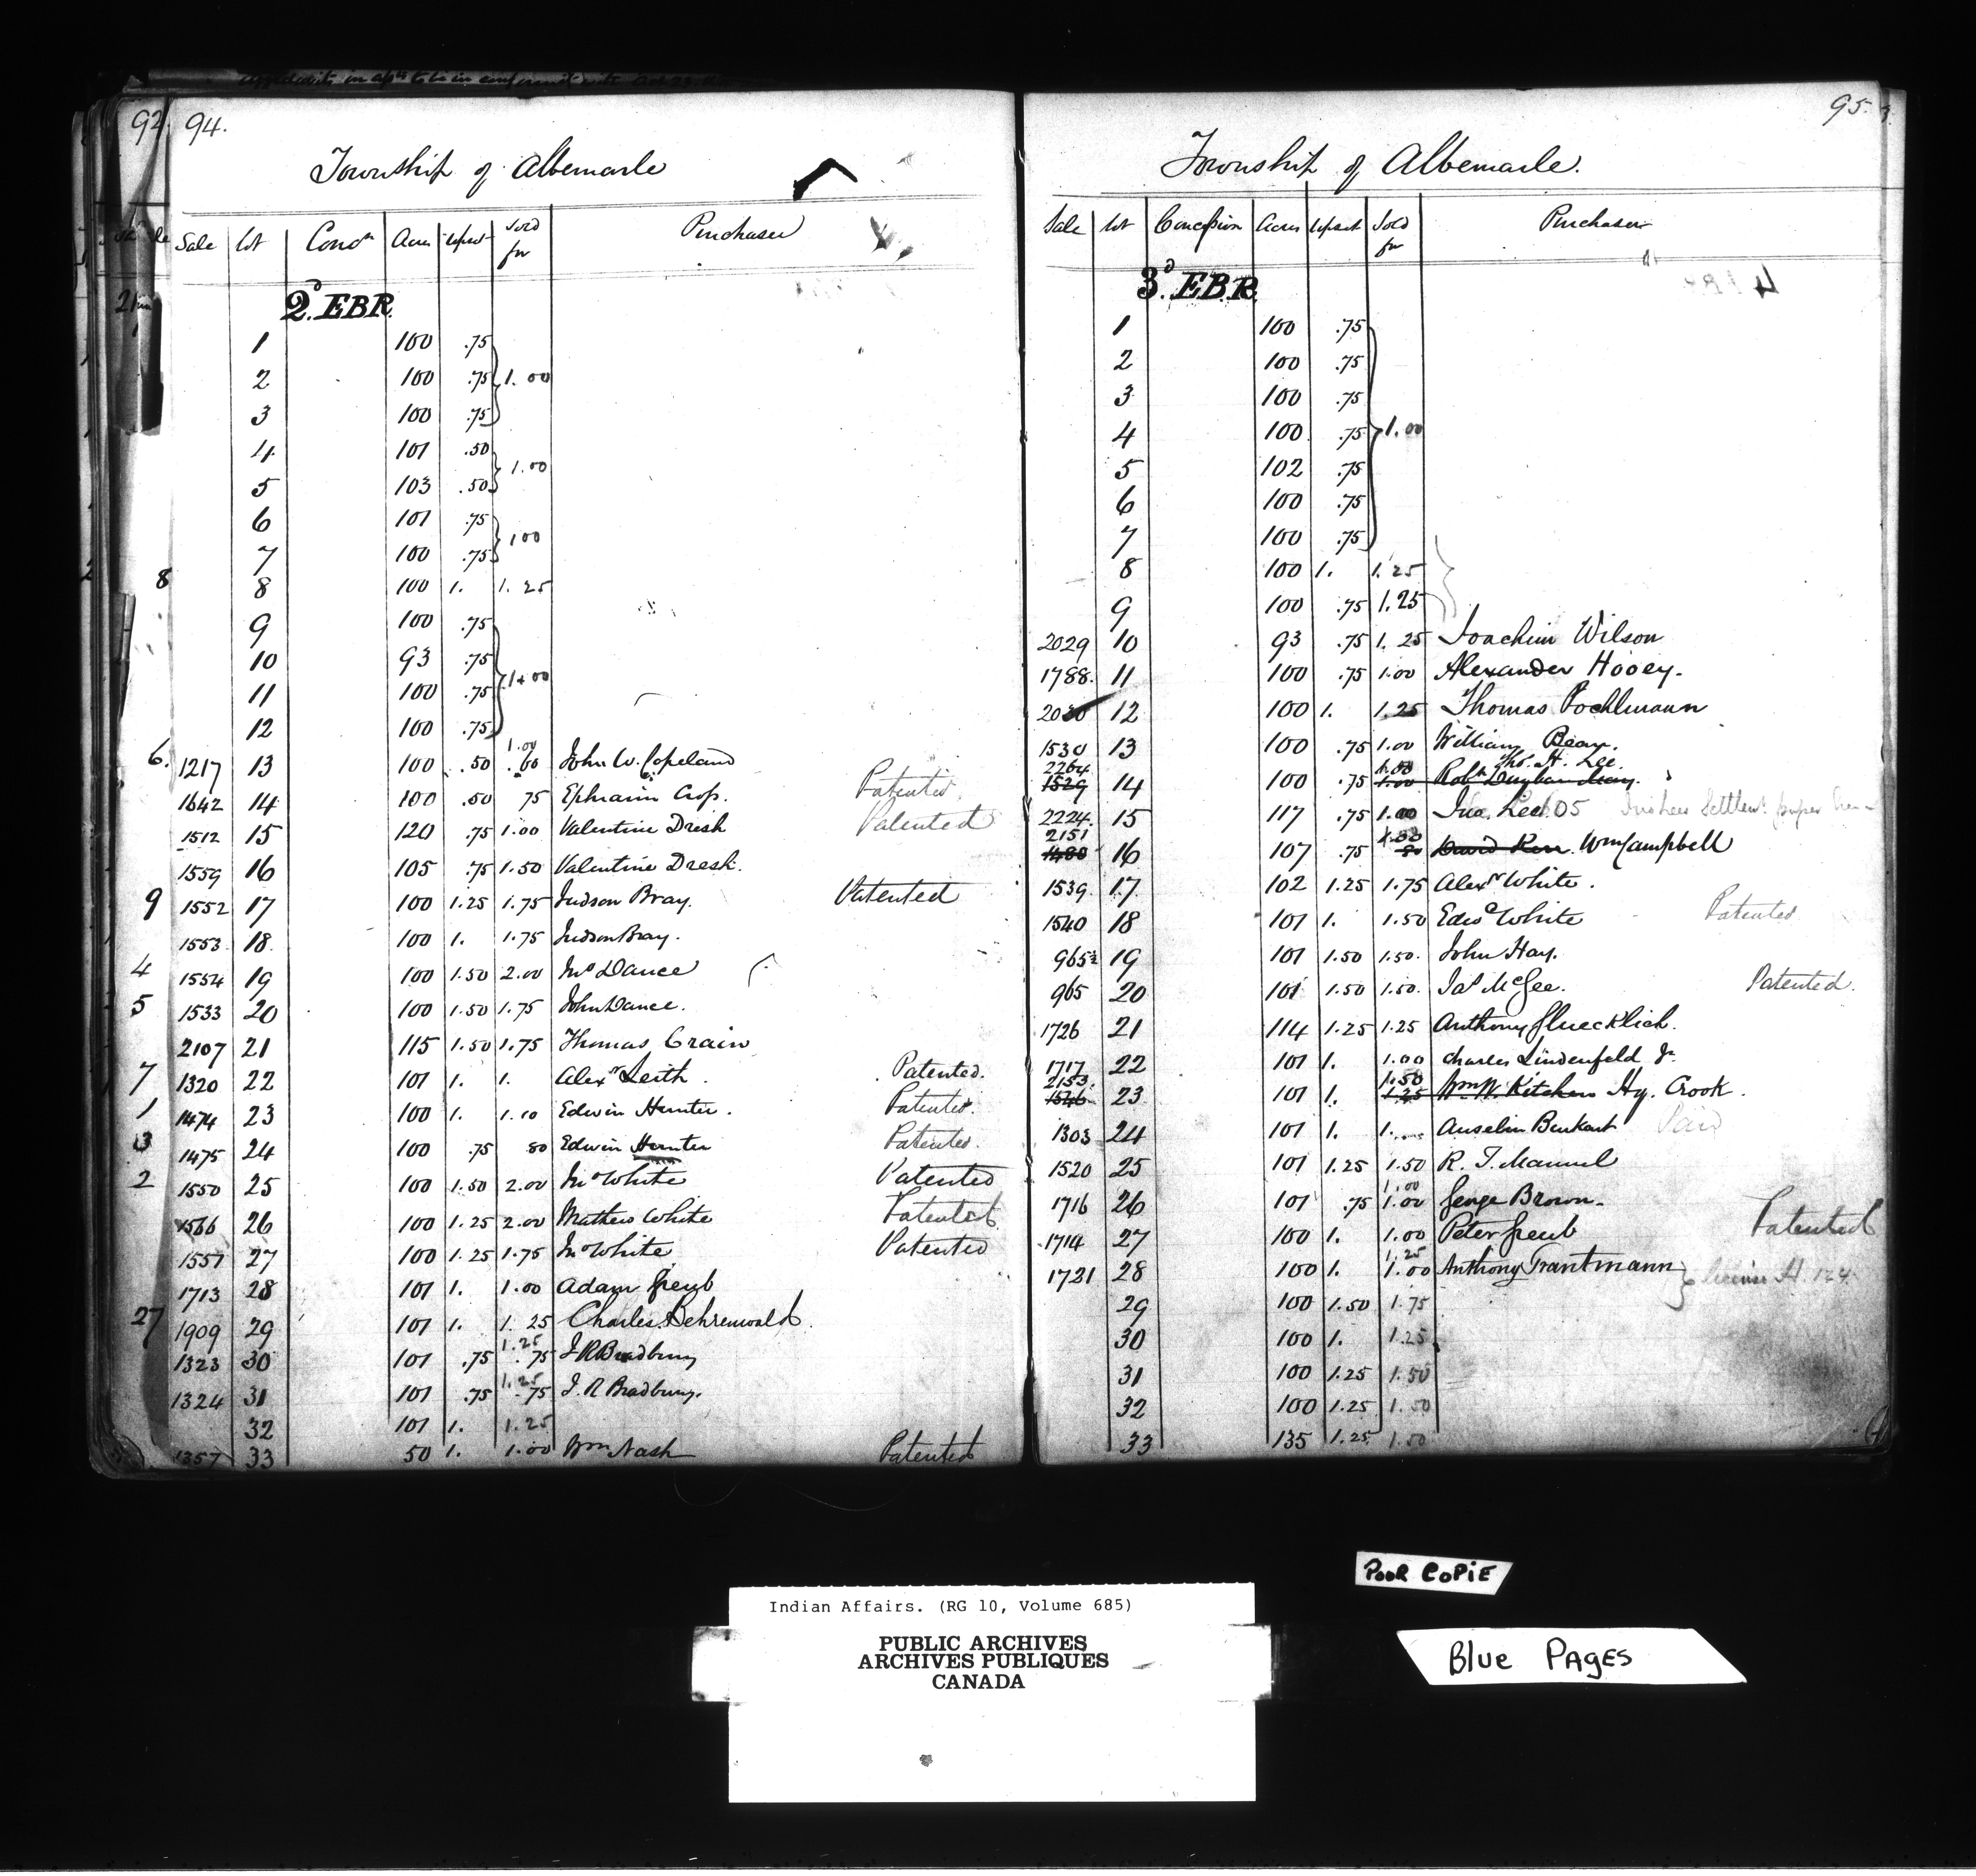 92 94.
Township of Albemarle
Sale Lot Conc.n Acres Upset Sold for Purchaser
2d. EBR.
1 100 .75
2 100 .75 1.00
3 100 .75
4 101 .50
5 103 .50 1.00
6 101 .75
7 100 .75 100
8 8 100 1. 1.25
9 100 .75
10 93 .75
11 100 .75 1.00
12 100 .75
6. 1217 13 100 .50 1.00 .60 John W. Copeland
1642 14 100 .50 75 Ephraim Crop. Patented
1512 15 120 .75 1.00 Valentine Dresh Patented
1559 16 105 .75 1.50 Valentine Dresh.
9 1552 17 100 1.25 1.75 Judson Bray. Patented
1553 18 100 1. 1.75 Judson Bray.
4 1554 19 100 1.50 2.00 Jno Dance
5 1533 20 100 1.50 1.75 John Dance.
2107 21 115 1.50 1.75 Thomas Crain
7 1320 22 101 1. 1. Alexr Leith. Patented.
1 1474 23 100 1. 1.10 Edwin Hunter. Patented.
3 1475 24 100 .75 80 Edwin Hunter Patented.
2 1550 25 100 1.50 2.00 Jno White Patented
1566 26 100 1.25 2.00 Mathew White Patented
1557 27 100 1.25 1.75 Jno White Patented
1713 28 101 1. 1.00 Adam Greub
27 1909 29 101 1. 1.25 Charles Behrenwald.
1323 30 101 .75 1.25 .75 J R Bradbury
1324 31 101 .75 1.25 .75 J. R Bradbury.
32 101 1. 1.25
1357 33 50 1. 1.00 Wm Nash Patented
95.
Township of Albemarle.
Sale Lot Concession Acres Upset Sold for Purchaser
3d. EBR.
1 100 .75
2 100 .75
3 100 .75
4 100 .75 1.00
5 102 .75
6 100 .75
7 100 .75
8 100 1. 1.25
9 100 .75 1.25
2029 10 93 .75 1.25 Joachim Wilson
1788. 11 100 .75 1.00 Alexander Hooey.
2030 12 100 1. 1.25 Thomas Pochlmann
1530 13 100 .75 1.00 William Bear.
2264 1529 14 100 .75 1.00 Tho. H. Lee.
2224. 15 117 .75 1.00 Jno. Lee. 05
2151 1480 16 107 .75 80 David Kerr. Wm Campbell
1539 17 102 1.25 1.75 Alexr White.
1540 18 101 1. 1.50 Edwd White Patented
965½ 19 101 1.50 1.50. John Hay.
965 20 101 1.50 1.50. Jas McGee. Patented.
1726 21 114 1.25 1.25 Anthony Gluecklich.
1717 22 101 1. 1.00 Charles Lindenfeld Jr
2153. 1546 23 101 1. 1.50 1.25 Wm W. Kitchen Hy. Crook.
1303 24 101 1. 1. Anselm Burkart Paid
1520 25 101 1.25 1.50 R. T. Manuel
1716 26 101 .75 1.00 1.00 George Brown.
1714 27 100 1. 1.00 Peter Greub Patented
1721 28 100 1. 1.25 1.00 Anthony Trantmann
29 100 1.50 1.75
30 100 1. 1.25
31 100 1.25 1.50
32 100 1.25 1.50
33 135 1.25 1.50
POOR COPIE
Indian Affairs. (RG 10, Volume 685)
PUBLIC ARCHIVES
ARCHIVES PUBLIQUES
CANADA
Blue PAGES